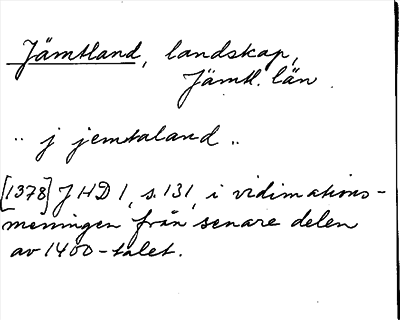 Jämtland, landskap,
Jämtl. län.
" j jemtaland "
[1378] JHD 1, s. 131, i vidimations-
meningen från senare delen
av 1400-talet.